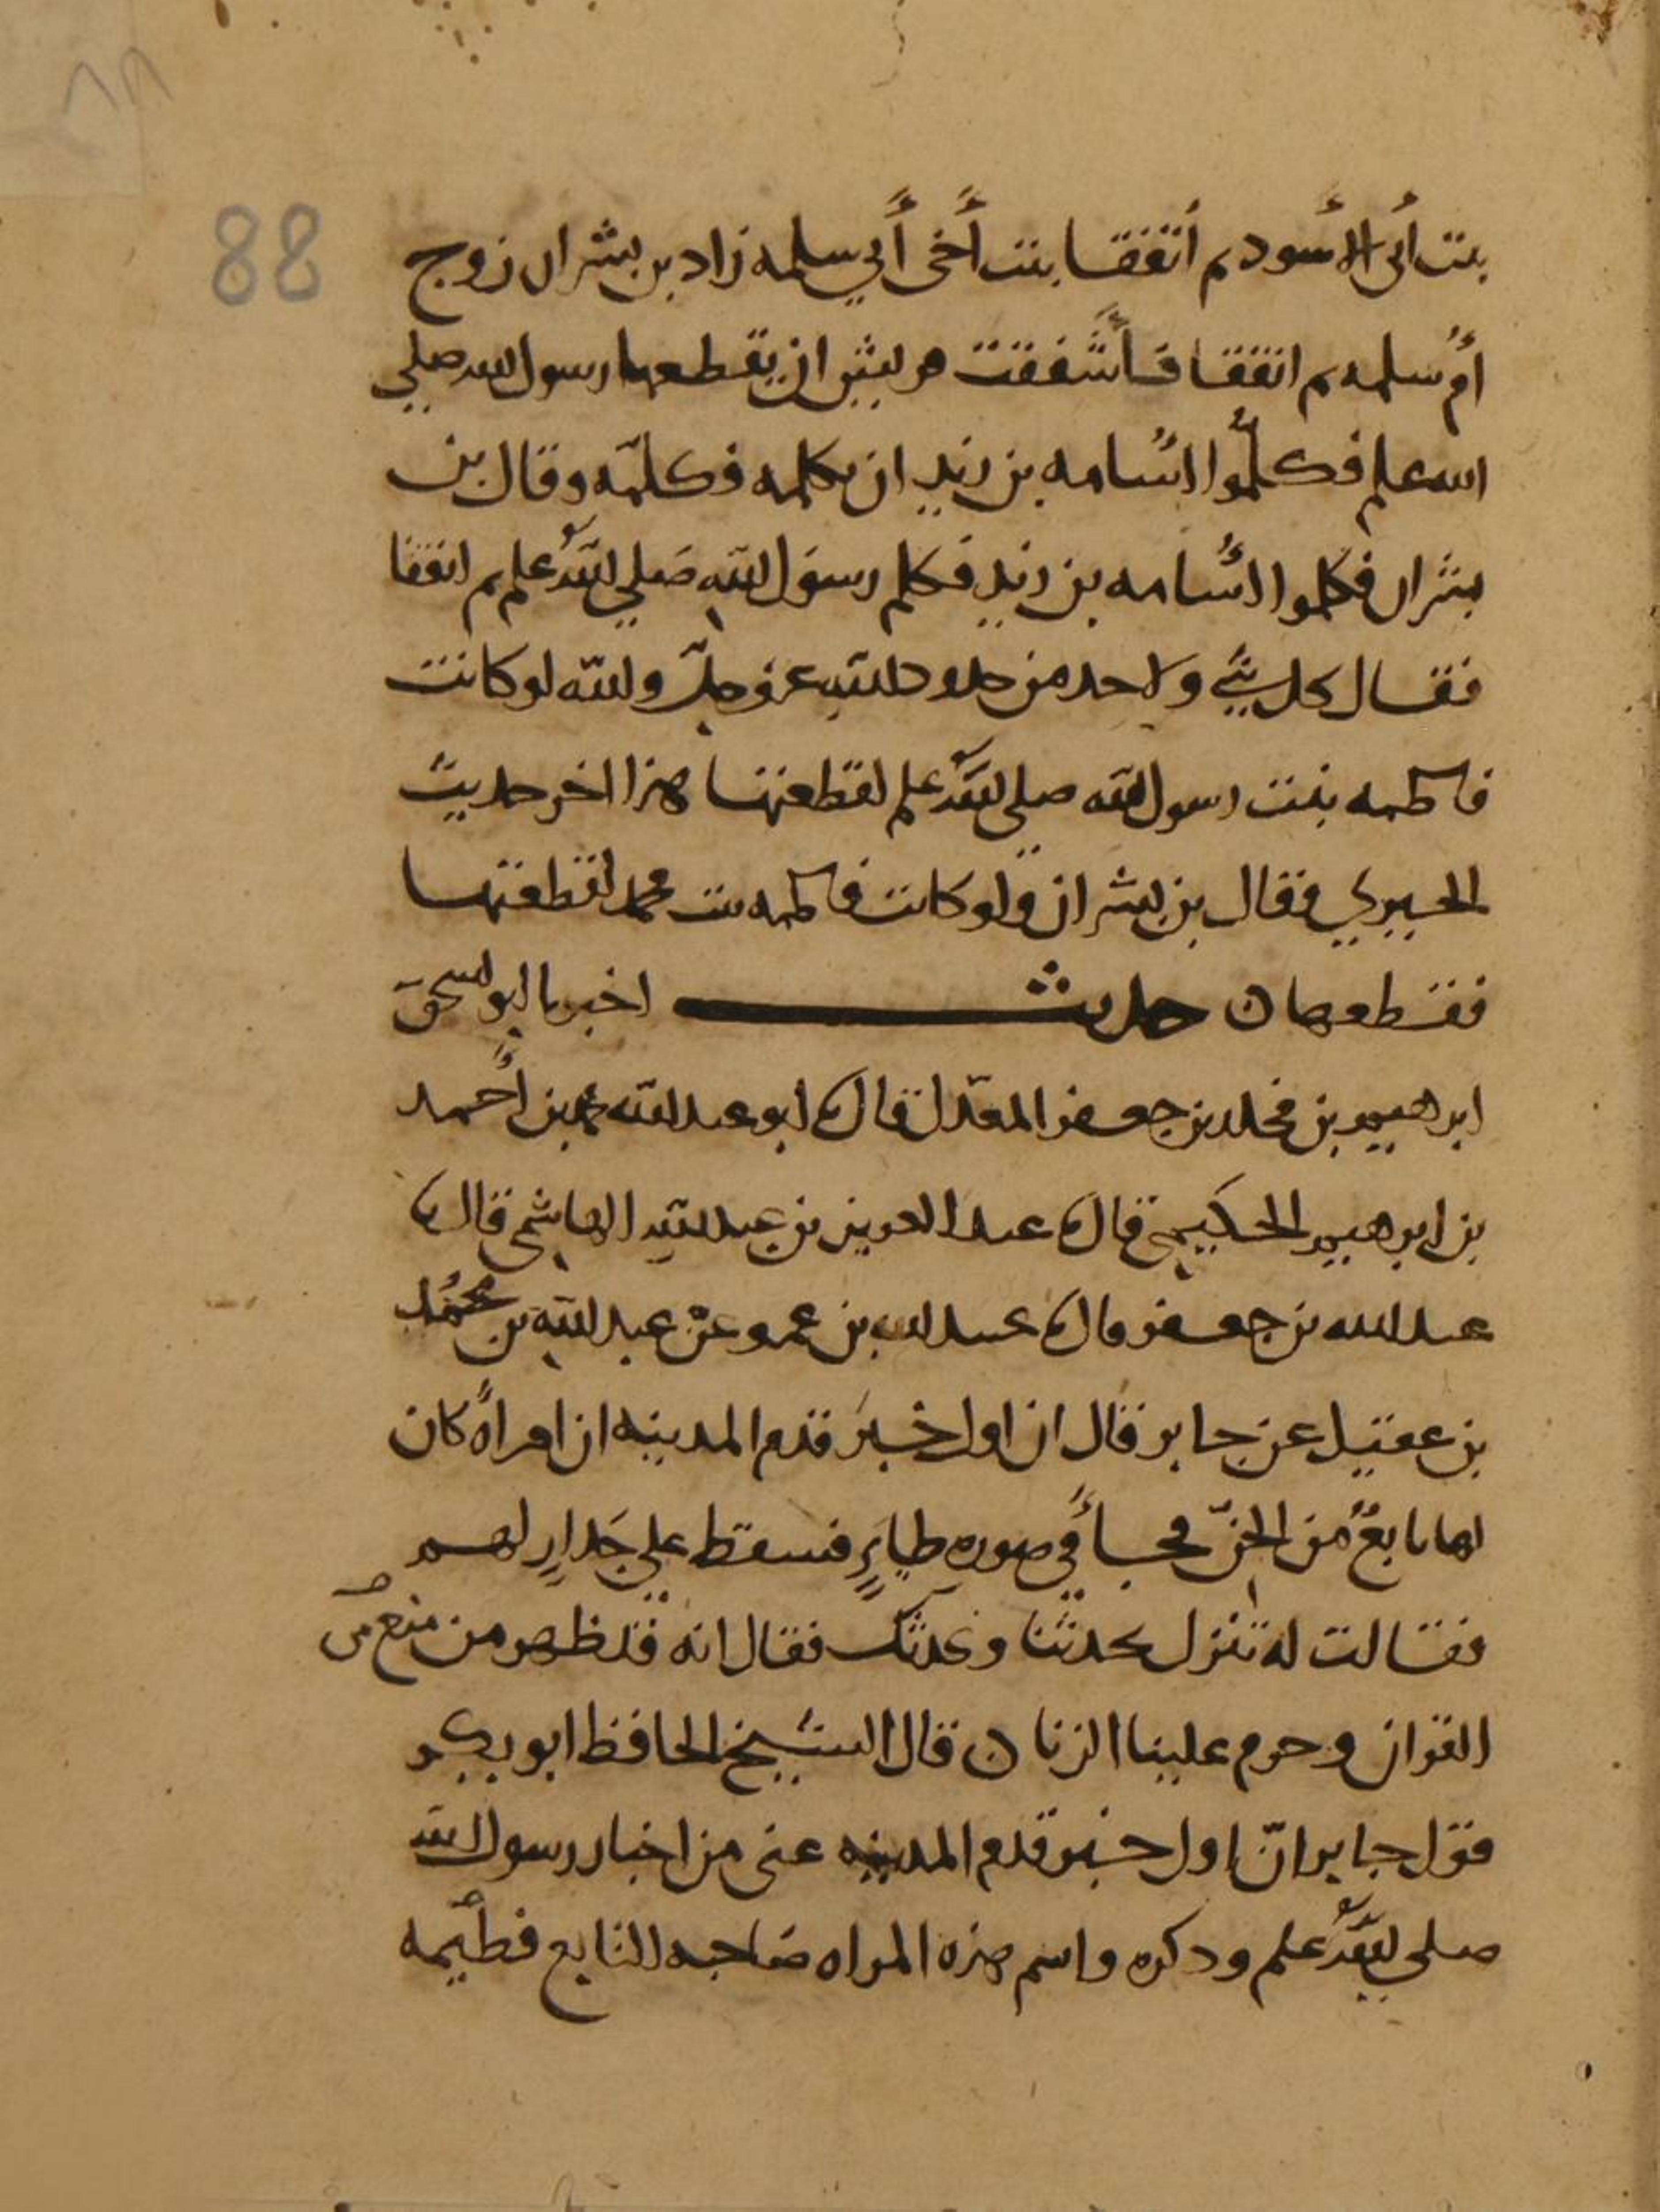 ٨٨
88
بنت أبي الأسود ثم اتفقا بنت أخي أبي سلمه زاد بن بشران زوج
أم سلمه ثم اتفقا فأشفقت قريش ان يقطعها رسول الله صلى
الله علم فكلموا اسامه بن زيد ان يكلمه فكلمه وقال بن
بشران فكلموا اسامه بن زيد فكلم رسول الله صلى الله علم ثم اتفقا
فقال كل شي ولا حد من حدود الله عز وجل والله لو كانت
فاطمه بنت رسول الله صلى الله علم لقطعتها هذا اخر حديث
الحيري فقال بن بشران ولو كانت فاطمه بنت محمد لقطعتها
فقطعها ن حديث اخبرنا ابو اسحق
ابرهيم بن مخلد بن جعفر المعدل قال ابو عبد الله محمد بن أحمد
بن ابرهيم الحكيمي قال عبد العزيز بن عبد الله الهاشمي قال
عبد الله بن جعفر قال عبيد الله بن عمرو عن عبد الله بن محمد
بن عقيل عن جابر قال ان اول خبر قدم المدينه ان امرأة كان
لها تابع من الجن فجأ في صوره طاير فسقط على جدار لهم
فقالت له تنزل تحدثنا ونحدثك فقال انه قد ظهر من منع من
القران وحرم علينا الزنا ن قال الشيخ الحافظ ابو بكر
قول جابر ان اول خبر قدم المدينه عني من اخبار رسول الله
صلى الله علم وذكره واسم هذه المراه صاحبه التابع فطيمه